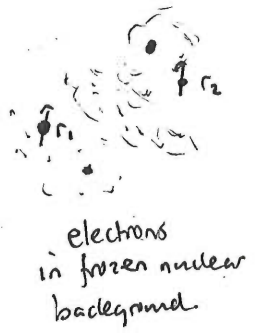 r₂
r₁
electrons
in frozen nuclear
background.